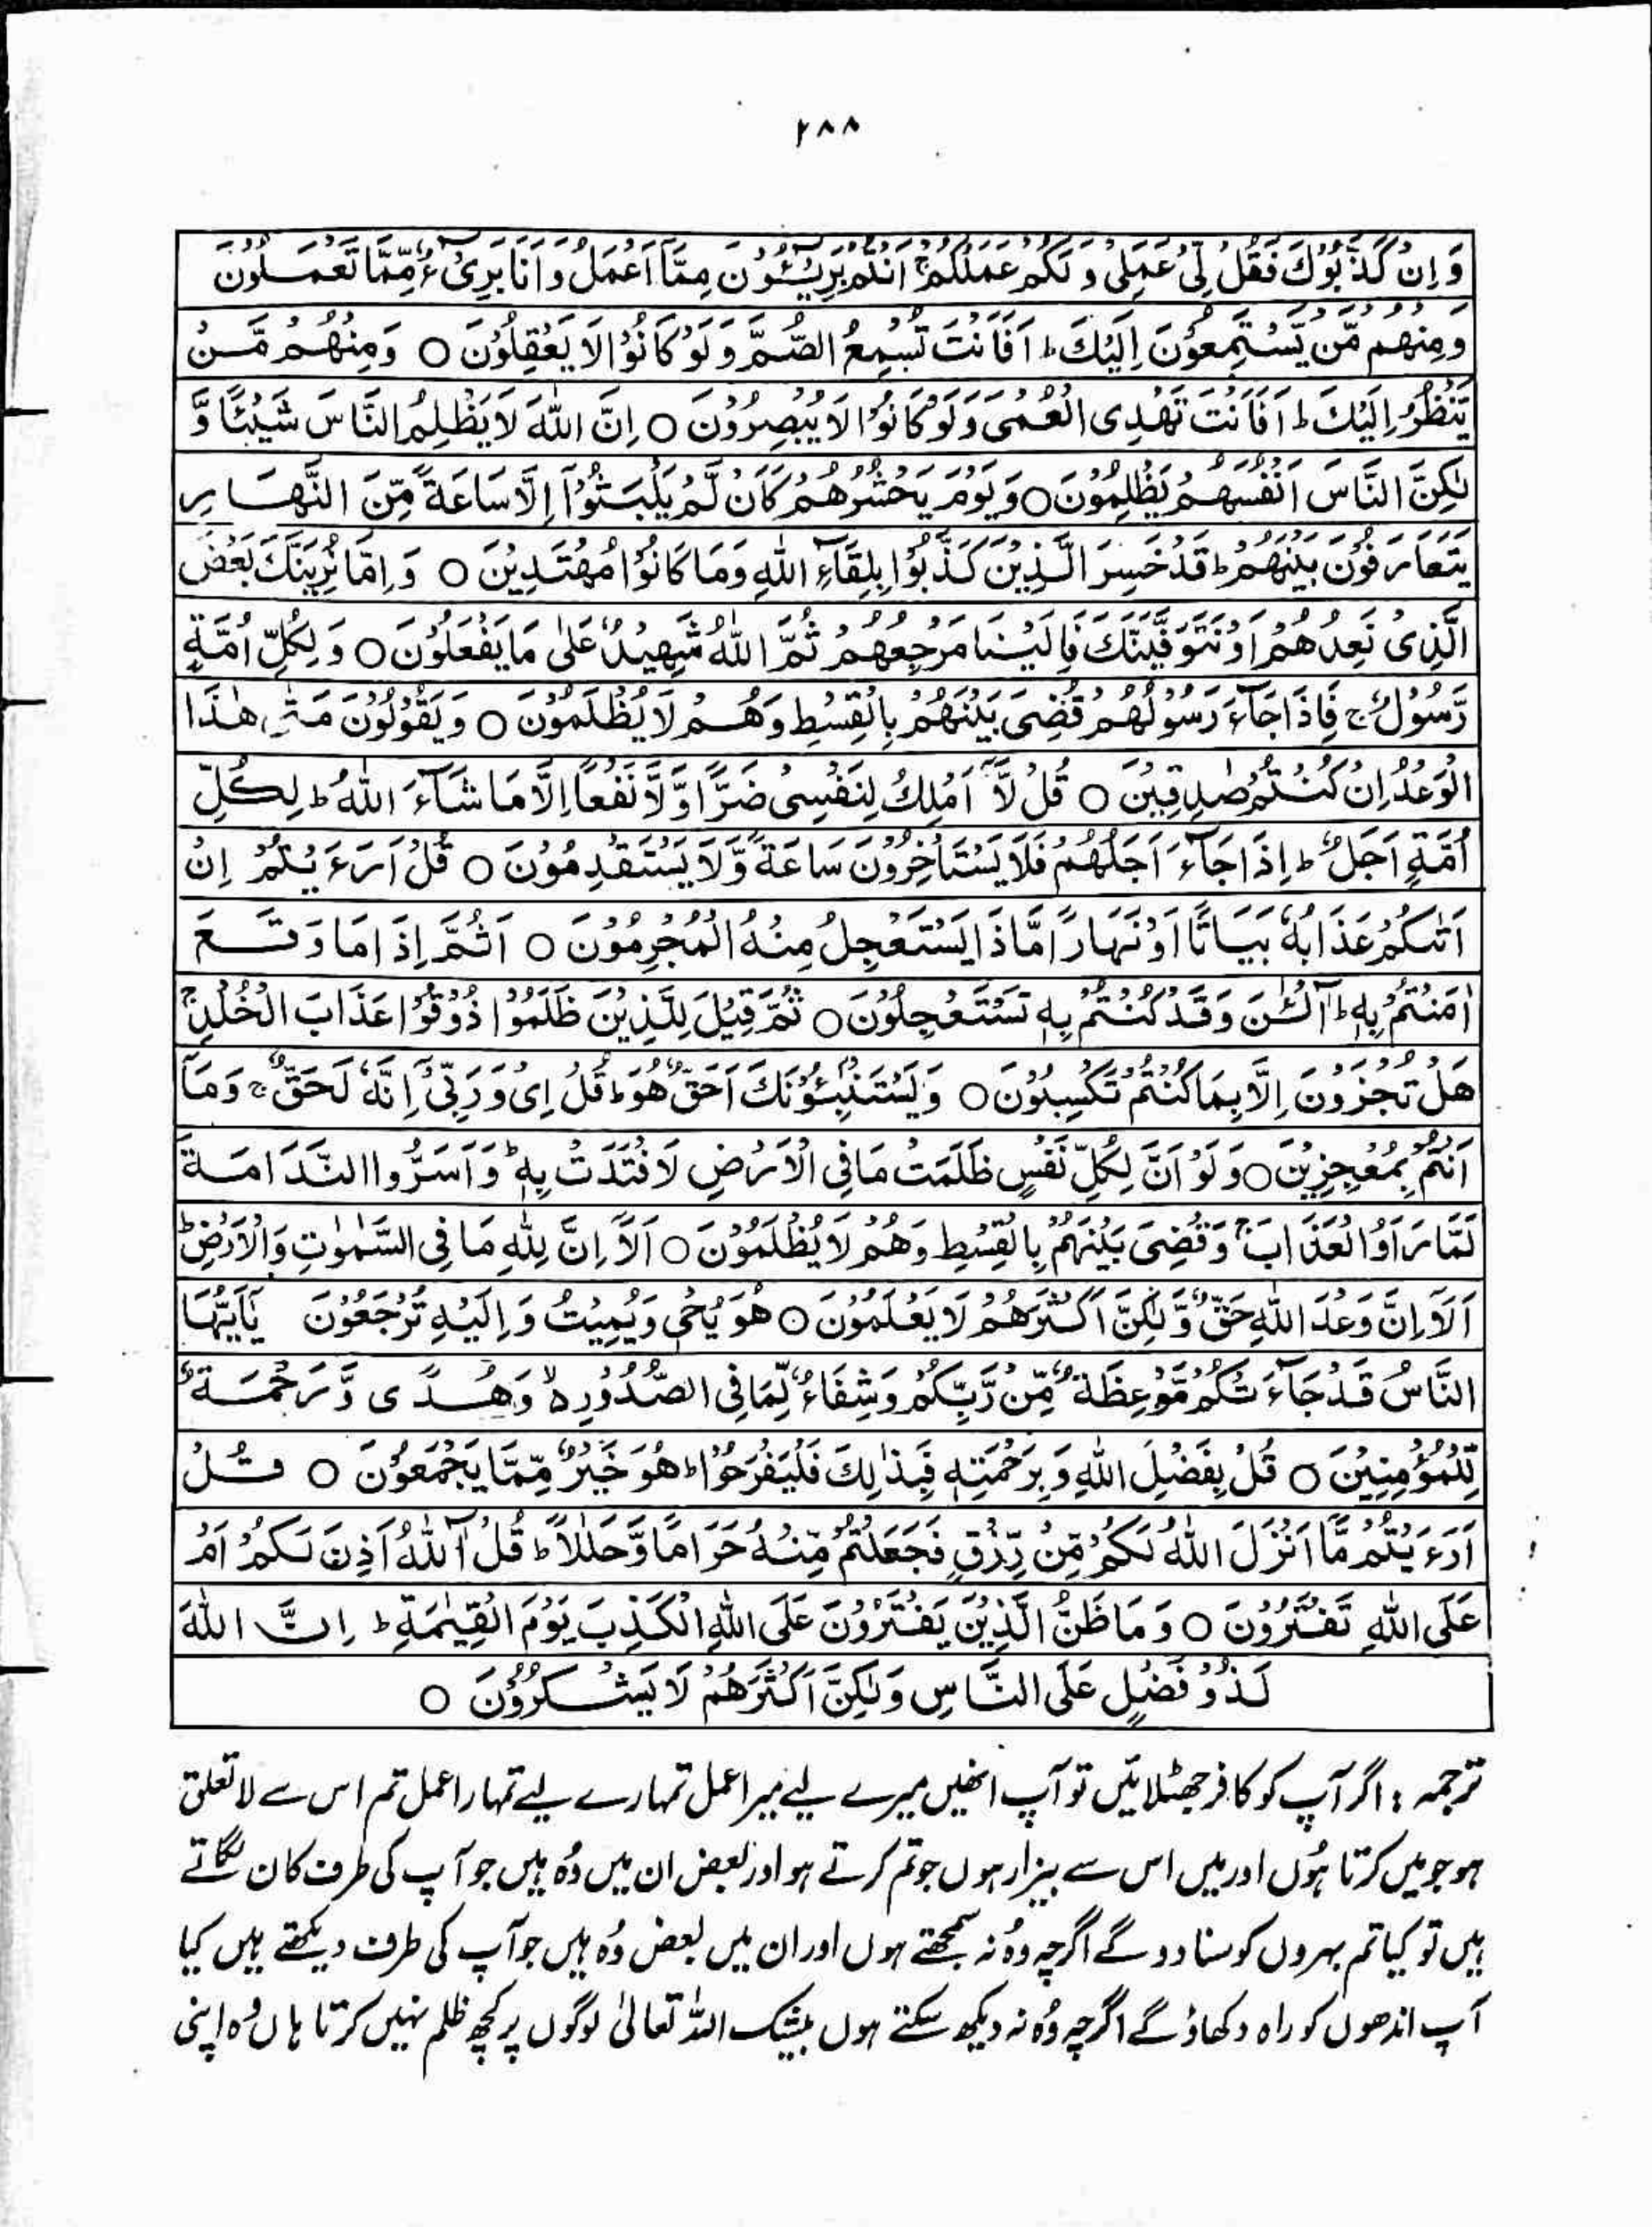 ۲۸۸
وَاِنْ كَذَّبُوْكَ فَقُلْ لِّیْ عَمَلِیْ وَلَكُمْ عَمَلُكُمْ ج اَنْتُمْ بَرِیْٓـُٔوْنَ مِمَّآ اَعْمَلُ وَاَنَا بَرِیْٓءٌ مِّمَّا تَعْمَلُوْنَ
وَمِنْهُمْ مَّنْ یَّسْتَمِعُوْنَ اِلَیْكَ ط اَفَاَنْتَ تُسْمِعُ الصُّمَّ وَلَوْ كَانُوْا لَا یَعْقِلُوْنَ ○ وَمِنْهُمْ مَّنْ
یَّنْظُرُ اِلَیْكَ ط اَفَاَنْتَ تَهْدِی الْعُمْیَ وَلَوْ كَانُوْا لَا یُبْصِرُوْنَ ○ اِنَّ اللّٰهَ لَا یَظْلِمُ النَّاسَ شَیْئًا وَّ
لٰكِنَّ النَّاسَ اَنْفُسَهُمْ یَظْلِمُوْنَ ○ وَیَوْمَ یَحْشُرُهُمْ كَاَنْ لَّمْ یَلْبَثُوْٓا اِلَّا سَاعَةً مِّنَ النَّهَارِ
یَتَعَارَفُوْنَ بَیْنَهُمْ ط قَدْ خَسِرَ الَّذِیْنَ كَذَّبُوْا بِلِقَآءِ اللّٰهِ وَمَا كَانُوْا مُهْتَدِیْنَ ○ وَاِمَّا نُرِیَنَّكَ بَعْضَ
الَّذِیْ نَعِدُهُمْ اَوْ نَتَوَفَّیَنَّكَ فَاِلَیْنَا مَرْجِعُهُمْ ثُمَّ اللّٰهُ شَهِیْدٌ عَلٰی مَا یَفْعَلُوْنَ ○ وَلِكُلِّ اُمَّةٍ
رَّسُوْلٌ ج فَاِذَا جَآءَ رَسُوْلُهُمْ قُضِیَ بَیْنَهُمْ بِالْقِسْطِ وَهُمْ لَا یُظْلَمُوْنَ ○ وَیَقُوْلُوْنَ مَتٰی هٰذَا
الْوَعْدُ اِنْ كُنْتُمْ صٰدِقِیْنَ ○ قُلْ لَّآ اَمْلِكُ لِنَفْسِیْ ضَرًّا وَّلَا نَفْعًا اِلَّا مَا شَآءَ اللّٰهُ ط لِكُلِّ
اُمَّةٍ اَجَلٌ ط اِذَا جَآءَ اَجَلُهُمْ فَلَا یَسْتَاْخِرُوْنَ سَاعَةً وَّلَا یَسْتَقْدِمُوْنَ ○ قُلْ اَرَءَیْتُمْ اِنْ
اَتٰىكُمْ عَذَابُهٗ بَیَاتًا اَوْ نَهَارًا مَّاذَا یَسْتَعْجِلُ مِنْهُ الْمُجْرِمُوْنَ ○ اَثُمَّ اِذَا مَا وَقَعَ
اٰمَنْتُمْ بِهٖ ط آٰلْئٰنَ وَقَدْ كُنْتُمْ بِهٖ تَسْتَعْجِلُوْنَ ○ ثُمَّ قِیْلَ لِلَّذِیْنَ ظَلَمُوْا ذُوْقُوْا عَذَابَ الْخُلْدِ ج
هَلْ تُجْزَوْنَ اِلَّا بِمَا كُنْتُمْ تَكْسِبُوْنَ ○ وَیَسْتَنْۢبِـُٔوْنَكَ اَحَقٌّ هُوَ ط قُلْ اِیْ وَرَبِّیْٓ اِنَّهٗ لَحَقٌّ ج وَمَآ
اَنْتُمْ بِمُعْجِزِیْنَ ○ وَلَوْ اَنَّ لِكُلِّ نَفْسٍ ظَلَمَتْ مَا فِی الْاَرْضِ لَافْتَدَتْ بِهٖ ط وَاَسَرُّوا النَّدَامَةَ
لَمَّا رَاَوُا الْعَذَابَ ج وَقُضِیَ بَیْنَهُمْ بِالْقِسْطِ وَهُمْ لَا یُظْلَمُوْنَ ○ اَلَآ اِنَّ لِلّٰهِ مَا فِی السَّمٰوٰتِ وَالْاَرْضِ ط
اَلَآ اِنَّ وَعْدَ اللّٰهِ حَقٌّ وَّلٰكِنَّ اَكْثَرَهُمْ لَا یَعْلَمُوْنَ ○ هُوَ یُحْیٖ وَیُمِیْتُ وَاِلَیْهِ تُرْجَعُوْنَ یٰٓاَیُّهَا
النَّاسُ قَدْ جَآءَتْكُمْ مَّوْعِظَةٌ مِّنْ رَّبِّكُمْ وَشِفَآءٌ لِّمَا فِی الصُّدُوْرِ ۵ لا وَهُدًی وَّرَحْمَةٌ
لِّلْمُؤْمِنِیْنَ ○ قُلْ بِفَضْلِ اللّٰهِ وَبِرَحْمَتِهٖ فَبِذٰلِكَ فَلْیَفْرَحُوْا ط هُوَ خَیْرٌ مِّمَّا یَجْمَعُوْنَ ○ قُلْ
اَرَءَیْتُمْ مَّآ اَنْزَلَ اللّٰهُ لَكُمْ مِّنْ رِّزْقٍ فَجَعَلْتُمْ مِّنْهُ حَرَامًا وَّحَلٰلًا ط قُلْ آٰللّٰهُ اَذِنَ لَكُمْ اَمْ
عَلَی اللّٰهِ تَفْتَرُوْنَ ○ وَمَا ظَنُّ الَّذِیْنَ یَفْتَرُوْنَ عَلَی اللّٰهِ الْكَذِبَ یَوْمَ الْقِیٰمَةِ ط اِنَّ اللّٰهَ
لَذُوْ فَضْلٍ عَلَی النَّاسِ وَلٰكِنَّ اَكْثَرَهُمْ لَا یَشْكُرُوْنَ ○
ترجمہ : اگر آپ کو کافر جھٹلائیں تو آپ انھیں میرے لیے میرا عمل تمہارے لیے تمہارا عمل تم اس سے لاتعلق
ہو جو میں کرتا ہُوں اور میں اس سے بیزار ہوں جو تم کرتے ہو اور بعض ان میں وُہ ہیں جو آپ کی طرف کان لگاتے
ہیں تو کیا تم بہروں کو سنا دو گے اگرچہ وہُ نہ سمجھتے ہوں اور ان میں بعض وُہ ہیں جو آپ کی طرف دیکھتے ہیں کیا
آپ اندھوں کو راہ دکھاؤ گے اگرچہ وُہ نہ دیکھ سکتے ہوں بیشک اللہ تعالیٰ لوگوں پر کچھ ظلم نہیں کرتا ہاں وُہ اپنی